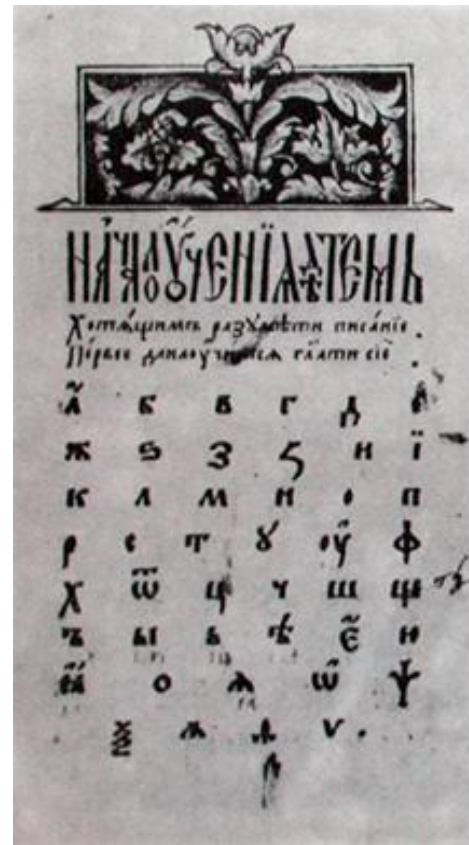 НАЧАЛО УЧЕНІѦ ДѢТЕМЪ
Хотѧ́щимъ разꙋмѣ́ти писа́ніе.
Пе́рвое
а б в г д е
ж ѕ з ꙁ и ї
к л м н о п
р с т ꙋ оу ф
х ѿ ц ч ш щ
ъ ы ь ѣ є ю
ꙗ о ѧ ѡ ѱ
ѯ ѫ ѧ ѵ.